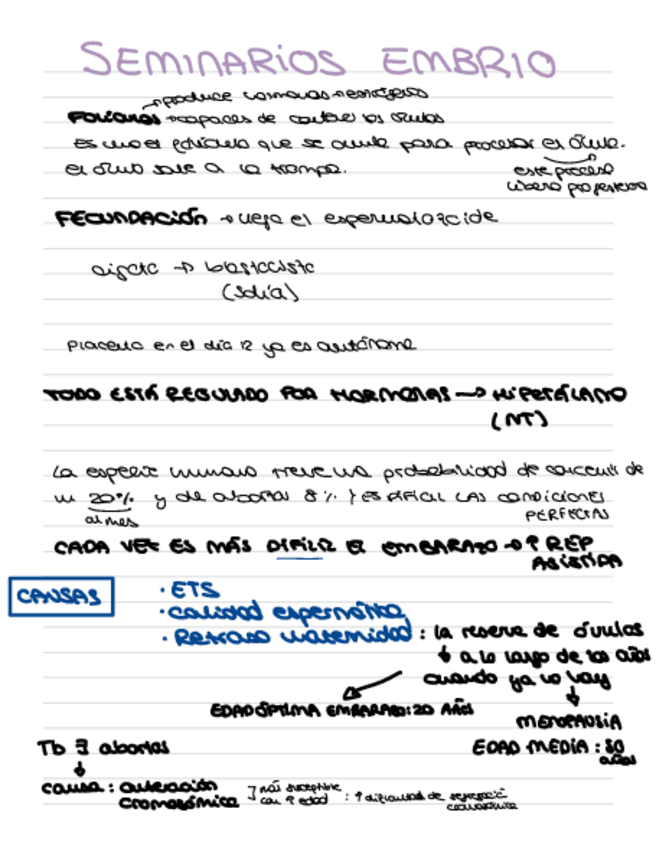 SEMINARIOS EMBRIO
→ produce hormonas → estrógenos
FOLÍCULOS → capaces de contener los óvulos
Es una el folículo que se para procesar el óvulo.
el óvulo sale a la trompa. este proceso
libera progesterona
FECUNDACIÓN → llega el espermatozoide
cigoto → blastocisto
(5día)
Placenta en el día 12 ya es autónoma
TODO ESTÁ REGULADO POR HORMONAS → HIPOTÁLAMO
(NT)
La especie humana tiene una probabilidad de concebir de
un 20% y de abortar 8% } ES DIFICIL LAS CONDICIONES
al mes PERFECTAS
CADA VEZ ES MÁS DIFÍLIZ EL EMBARAZO → ↑ REP
ASISTIDA
CAUSAS
· ETS
· calidad espermática
· Retraso maternidad : la reserva de óvulos
↓ a lo largo de los años
cuando ya no hay
EDAD ÓPTIMA EMBARAZO: 20 AÑOS
MENOPAUSIA
Tb ∃ abortos EDAD MEDIA : 50
años
causa : alteración ] más susceptible
cromosómica con ↑ edad : ↑ dificultad de segregació
cromosómica